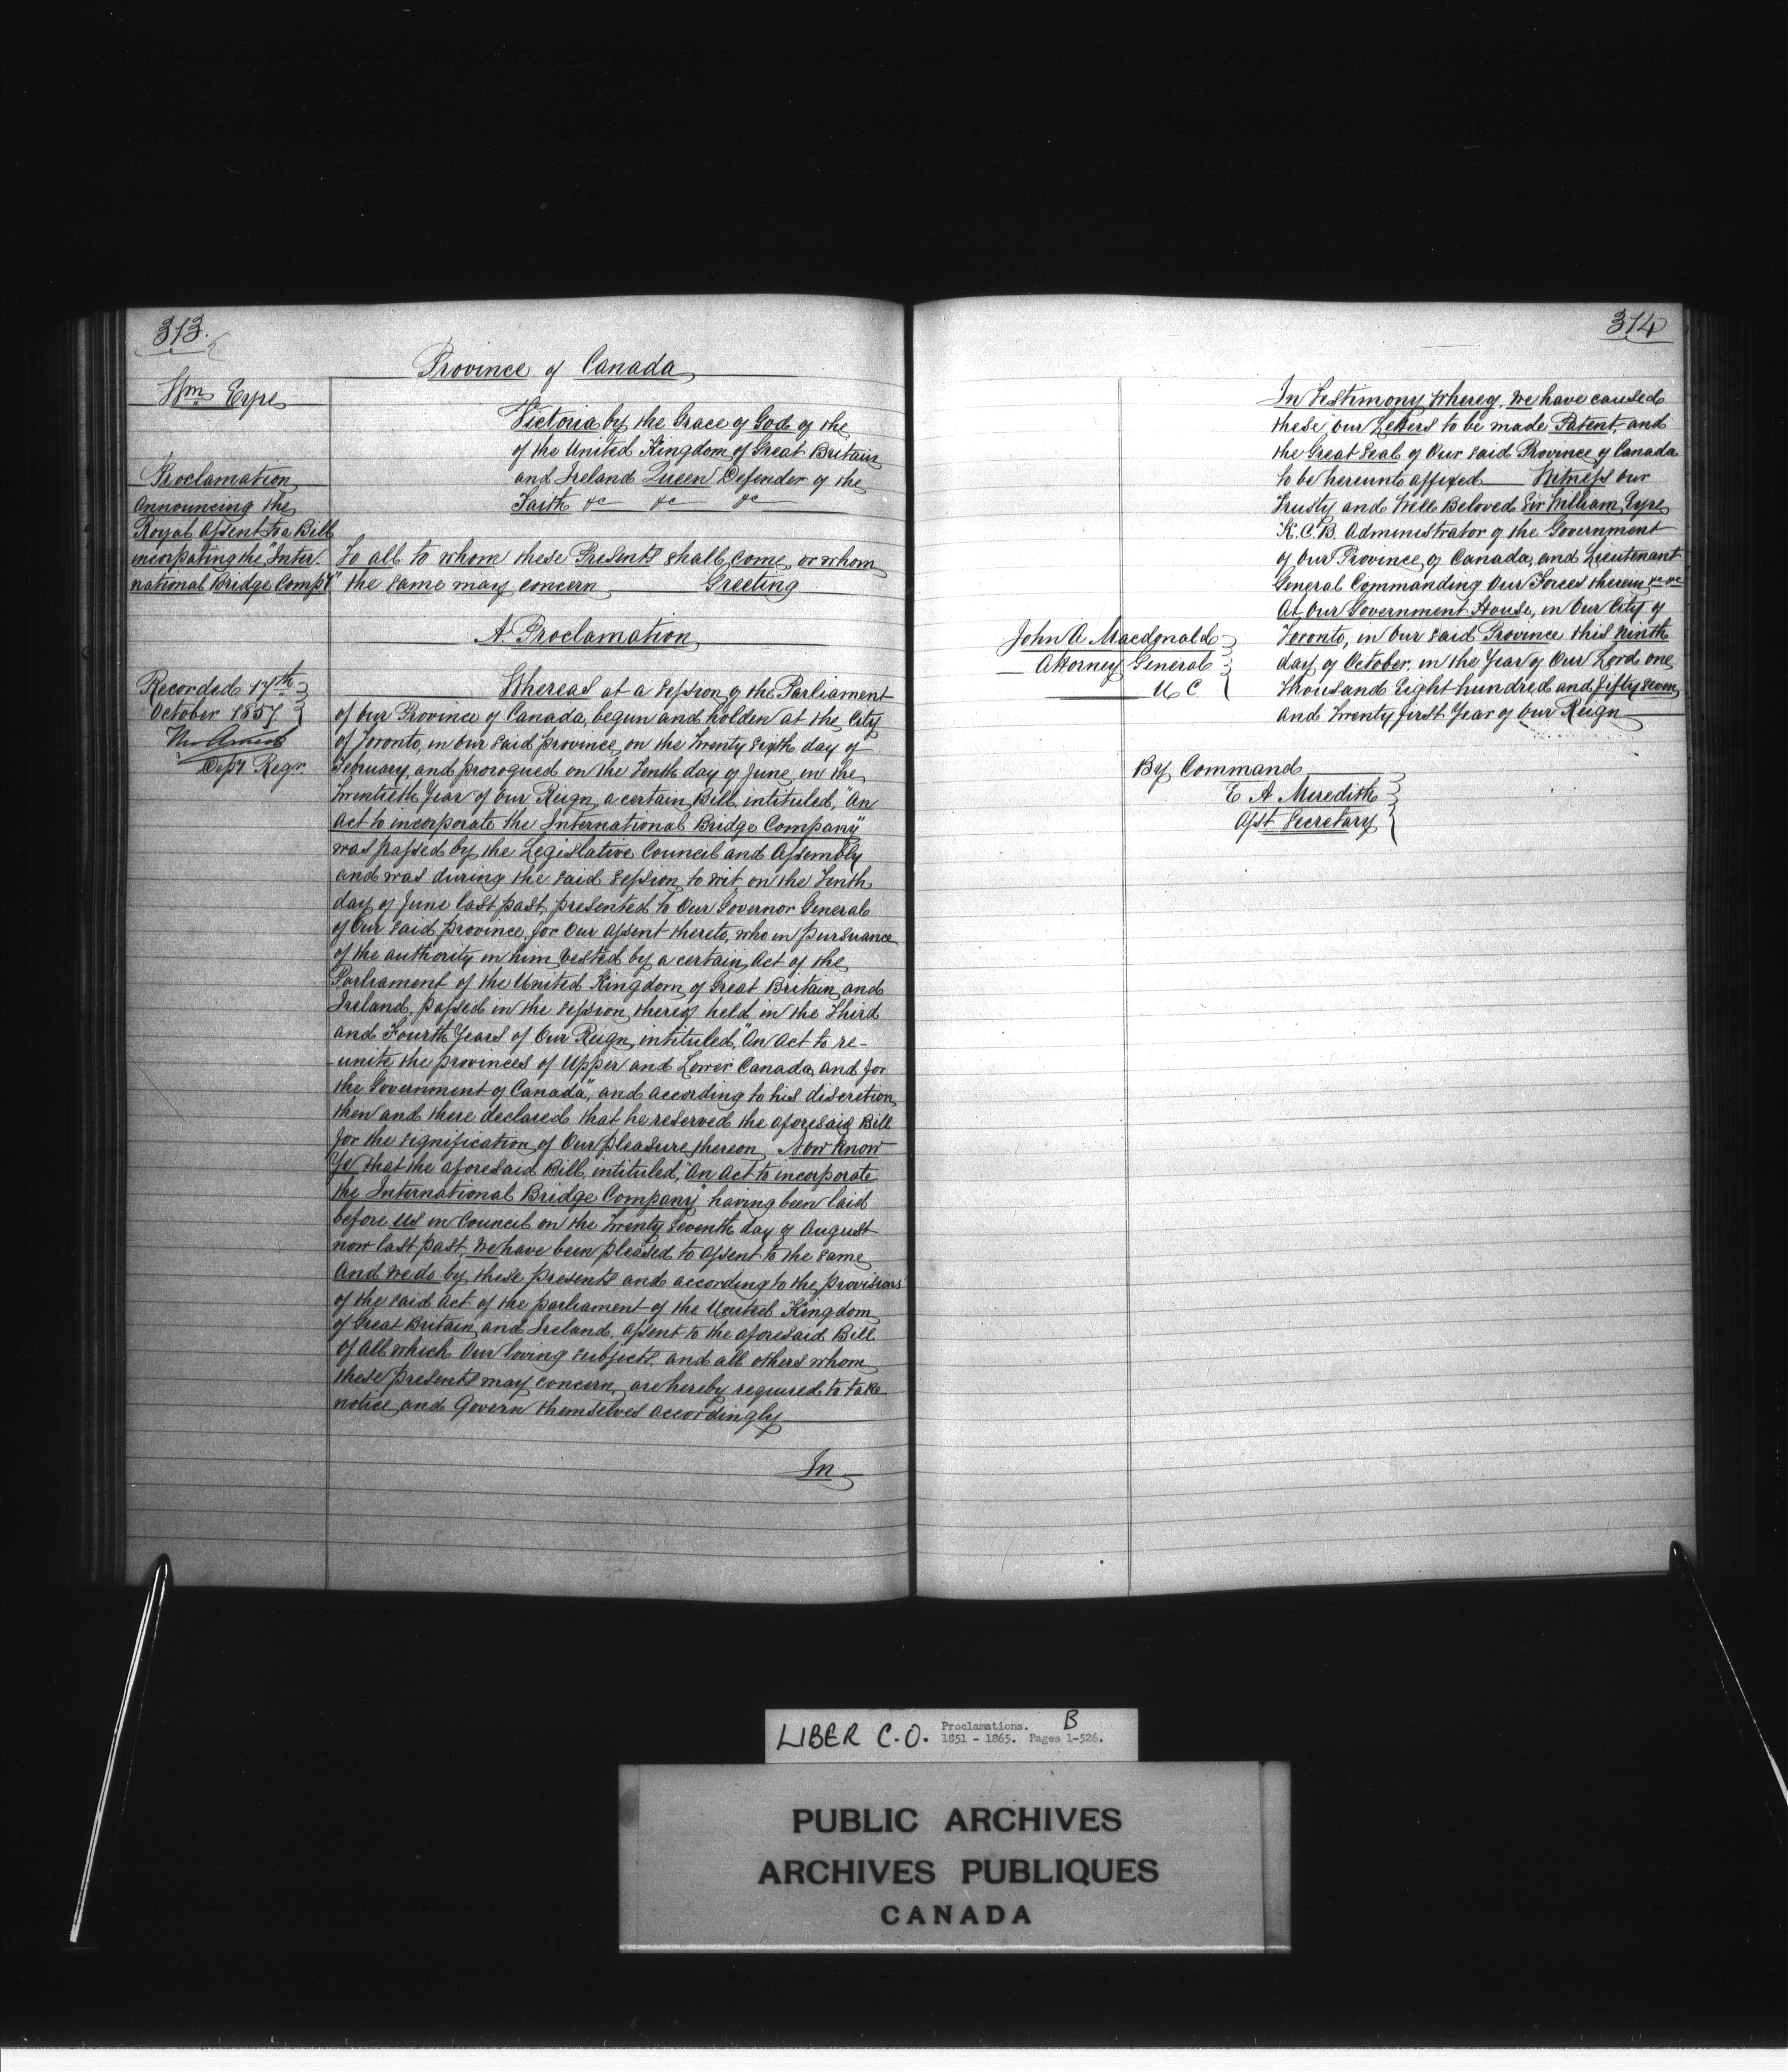 313.
Province of Canada
Wm Eyre
Victoria by the Grace of God of the
of the United Kingdom of Great Britain
and Ireland Queen Defender of the
Faith &c &c &c
Proclamation
Announcing the
Royal Assent to a Bill
incorpating the "Inter-
national Bridge Compy"
To all to whom these Presents shall come, or whom
the same may concern Greeting
A Proclamation
Recorded 17th
October 1857
Depy Regr.
Whereas at a Session of the Parliament
of Our Province of Canada, begun and holden at the City
of Toronto, in Our said province, on the Twenty Sixth day of
February, and prorogued on the Tenth day of June, in the
Twentieth Year of Our Reign, a certain Bill, intituled, "An
Act to incorporate the International Bridge Company"
was passed by the Legislative Council and Assembly
and was during the said Session, to wit, on the Tenth
day of June last past, presented to Our Governor General
of Our said province, for Our assent thereto, who in pursuance
of the authority in him vested by a certain Act of the
Parliament of the United Kingdom of Great Britain and
Ireland, passed in the Session thereof held in the Third
and Fourth Years of Our Reign, intituled, "An Act to re-
-unite the provinces of Upper and Lower Canada, and for
the Government of Canada", and according to his discretion
then and there declared that he reserved the aforesaid Bill
for the signification of Our pleasure thereon Now Know
Ye that the aforesaid Bill, intituled, "An Act to incorporate
the International Bridge Company" having been laid
before Us in Council on the Twenty Seventh day of August
now last past, We have been pleased to assent to the same
And We do by these presents and according to the provisions
of the said Act of the parliament of the United Kingdom
of Great Britain and Ireland, assent to the aforesaid Bill
Of all which Our loving subjects, and all others whom
these presents may concern, are hereby required to take
notice and Govern themselves accordingly
In
314
In Testimony Whereof, We have caused
these our Letters to be made Patent, and
the Great Seal of Our said Province of Canada
to be hereunto affixed Witness Our
Trusty and Well Beloved Sir William Eyre
K.C.B. Administrator of the Government
of Our Province of Canada, and Lieutenant
General Commanding Our Forces therein &c &c
At Our Government House, in Our City of
Toronto, in Our said Province this ninth
day of October, in the Year of Our Lord one
Thousand Eight hundred and fifty seven
and Twenty first Year of Our Reign
John A Macdonald
Attorney General
U C
By Command
E A Meredith
Asst Secretary
LIBER C.O. Proclamations. B
1851 - 1865. Pages 1-526.
PUBLIC ARCHIVES
ARCHIVES PUBLIQUES
CANADA